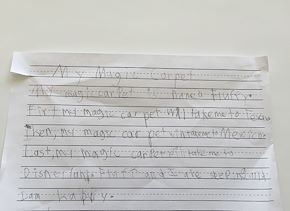 My Magic carpet
My magic carpet is named Flurry.
First my magic carpet will take me to Texas.
Then, my magic carpet will take me to Mexico.
Last, my magic carpet will take me to
Disneyland. and I ate
I am happy.